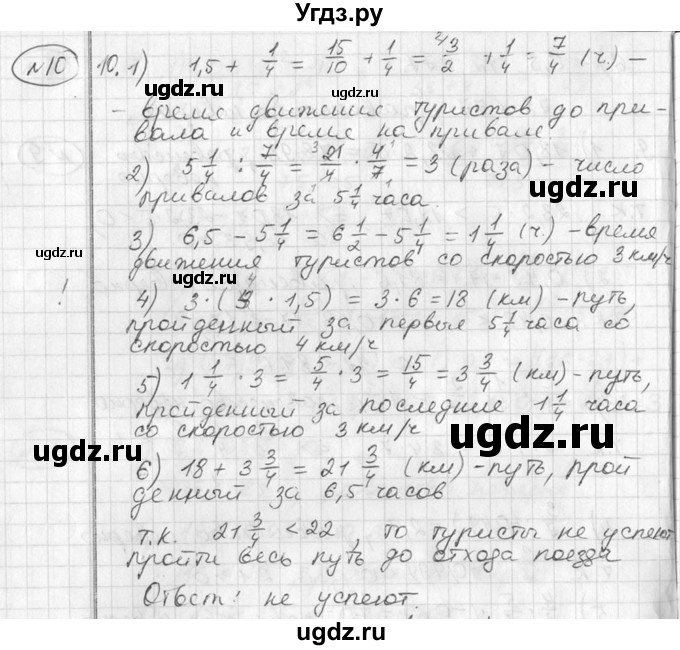 Угдз.ру
№10 10. 1) 1,5 + 1/4 = 15/10 + 1/4 = 3/2 + 1/4 = 7/4 (ч.) –
– время движения туристов до при-
вала и время на привале
2) 5 1/4 : 7/4 = 21/4 · 4/7 = 3 (раза) – число
привалов за 5 1/4 часа.
3) 6,5 – 5 1/4 = 6 1/2 – 5 1/4 = 1 1/4 (ч.) – время
движения туристов со скоростью 3 км/ч
! 4) 3 · (4 · 1,5) = 3 · 6 = 18 (км) – путь,
пройденный за первые 5 1/4 часа со
скоростью 4 км/ч
5) 1 1/4 · 3 = 5/4 · 3 = 15/4 = 3 3/4 (км) – путь,
пройденный за последние 1 1/4 часа
со скоростью 3 км/ч
6) 18 + 3 3/4 = 21 3/4 (км) – путь, прой
денный за 6,5 часов
т.к. 21 3/4 < 22, то туристы не успеют
пройти весь путь до отхода поезда
Ответ: не успеют.
ugdz.ru
ugdz.ru
ugdz.ru
ugdz.ru
ugdz.ru
ugdz.ru
ugdz.ru
ugdz.ru
ugdz.ru
ugdz.ru
ugdz.ru
ugdz.ru